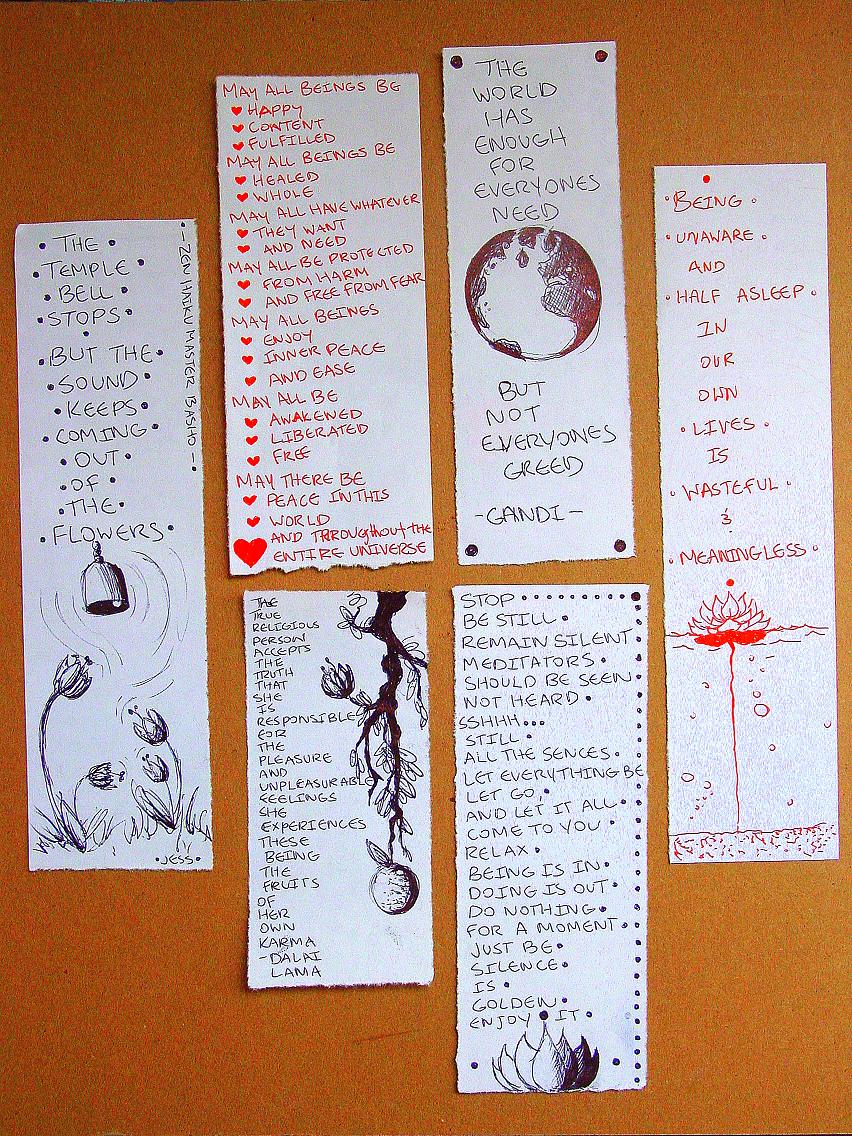 • THE •
• TEMPLE •
• BELL •
• STOPS •
•
• BUT THE •
• SOUND •
• KEEPS •
• COMING •
• OUT •
• OF •
• THE •
• FLOWERS •
•—ZEN HAIKU MASTER BASHO—•
• JESS •
MAY ALL BEINGS BE
♥ HAPPY
♥ CONTENT
♥ FULFILLED
MAY ALL BEINGS BE
♥ HEALED
♥ WHOLE
MAY ALL HAVE WHATEVER
♥ THEY WANT
♥ AND NEED
MAY ALL BE PROTECTED
♥ FROM HARM
♥ AND FREE FROM FEAR
MAY ALL BEINGS
♥ ENJOY
♥ INNER PEACE
♥ AND EASE
MAY ALL BE
♥ AWAKENED
♥ LIBERATED
♥ FREE
MAY THERE BE
♥ PEACE IN THIS
♥ WORLD
AND THROUGHOUT THE
♥ ENTIRE UNIVERSE
THE
WORLD
HAS
ENOUGH
FOR
EVERYONES
NEED
BUT
NOT
EVERYONES
GREED
-GANDI-
• BEING •
• UNAWARE •
AND
• HALF ASLEEP •
IN
OUR
OWN
• LIVES •
IS
• WASTEFUL •
&
• MEANINGLESS •
THE
TRUE
RELIGIOUS
PERSON
ACCEPTS
THE
TRUTH
THAT
SHE
IS
RESPONSIBLE
FOR
THE
PLEASURE
AND
UNPLEASURABLE
FEELINGS
SHE
EXPERIENCES
THESE
BEING
THE
FRUITS
OF
HER
OWN
KARMA
-DALAI
LAMA
STOP • • • • • • • • • • •
BE STILL •
REMAIN SILENT •
MEDITATORS •
SHOULD BE SEEN •
NOT HEARD •
SSHHH...
STILL •
ALL THE SENCES •
LET EVERYTHING BE
LET GO, •
AND LET IT ALL •
COME TO YOU •
RELAX •
BEING IS IN •
DOING IS OUT •
DO NOTHING •
FOR A MOMENT •
JUST BE •
SILENCE •
IS •
GOLDEN •
ENJOY • IT •